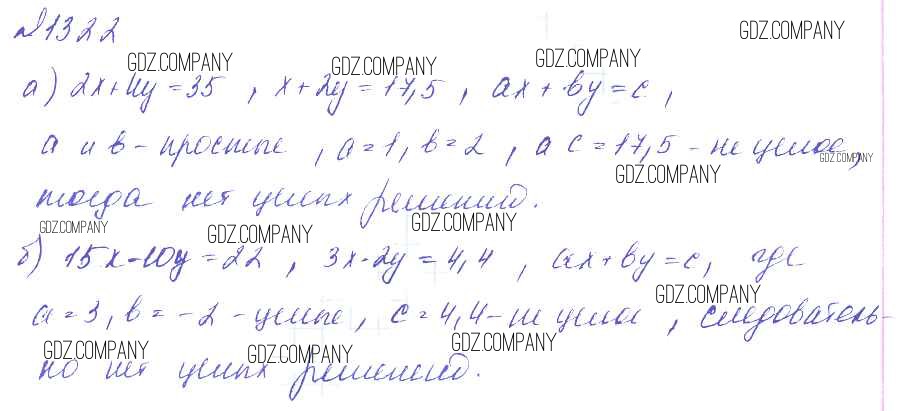 №1322
GDZ.COMPANY
GDZ.COMPANY GDZ.COMPANY GDZ.COMPANY
а) 2x+4y=35, x+2y=17,5, ax+by=c,
а и в - простые, a=1, b=2, а c=17,5 - не целое,
GDZ.COMPANY
GDZ.COMPANY
тогда нет целых решений.
GDZ.COMPANY GDZ.COMPANY GDZ.COMPANY
б) 15x-10y=22, 3x-2y=4,4, ax+by=c, где
GDZ.COMPANY
a=3, b=-2 - целые, c=4,4 - не целое, следователь-
GDZ.COMPANY GDZ.COMPANY GDZ.COMPANY
но нет целых решений.